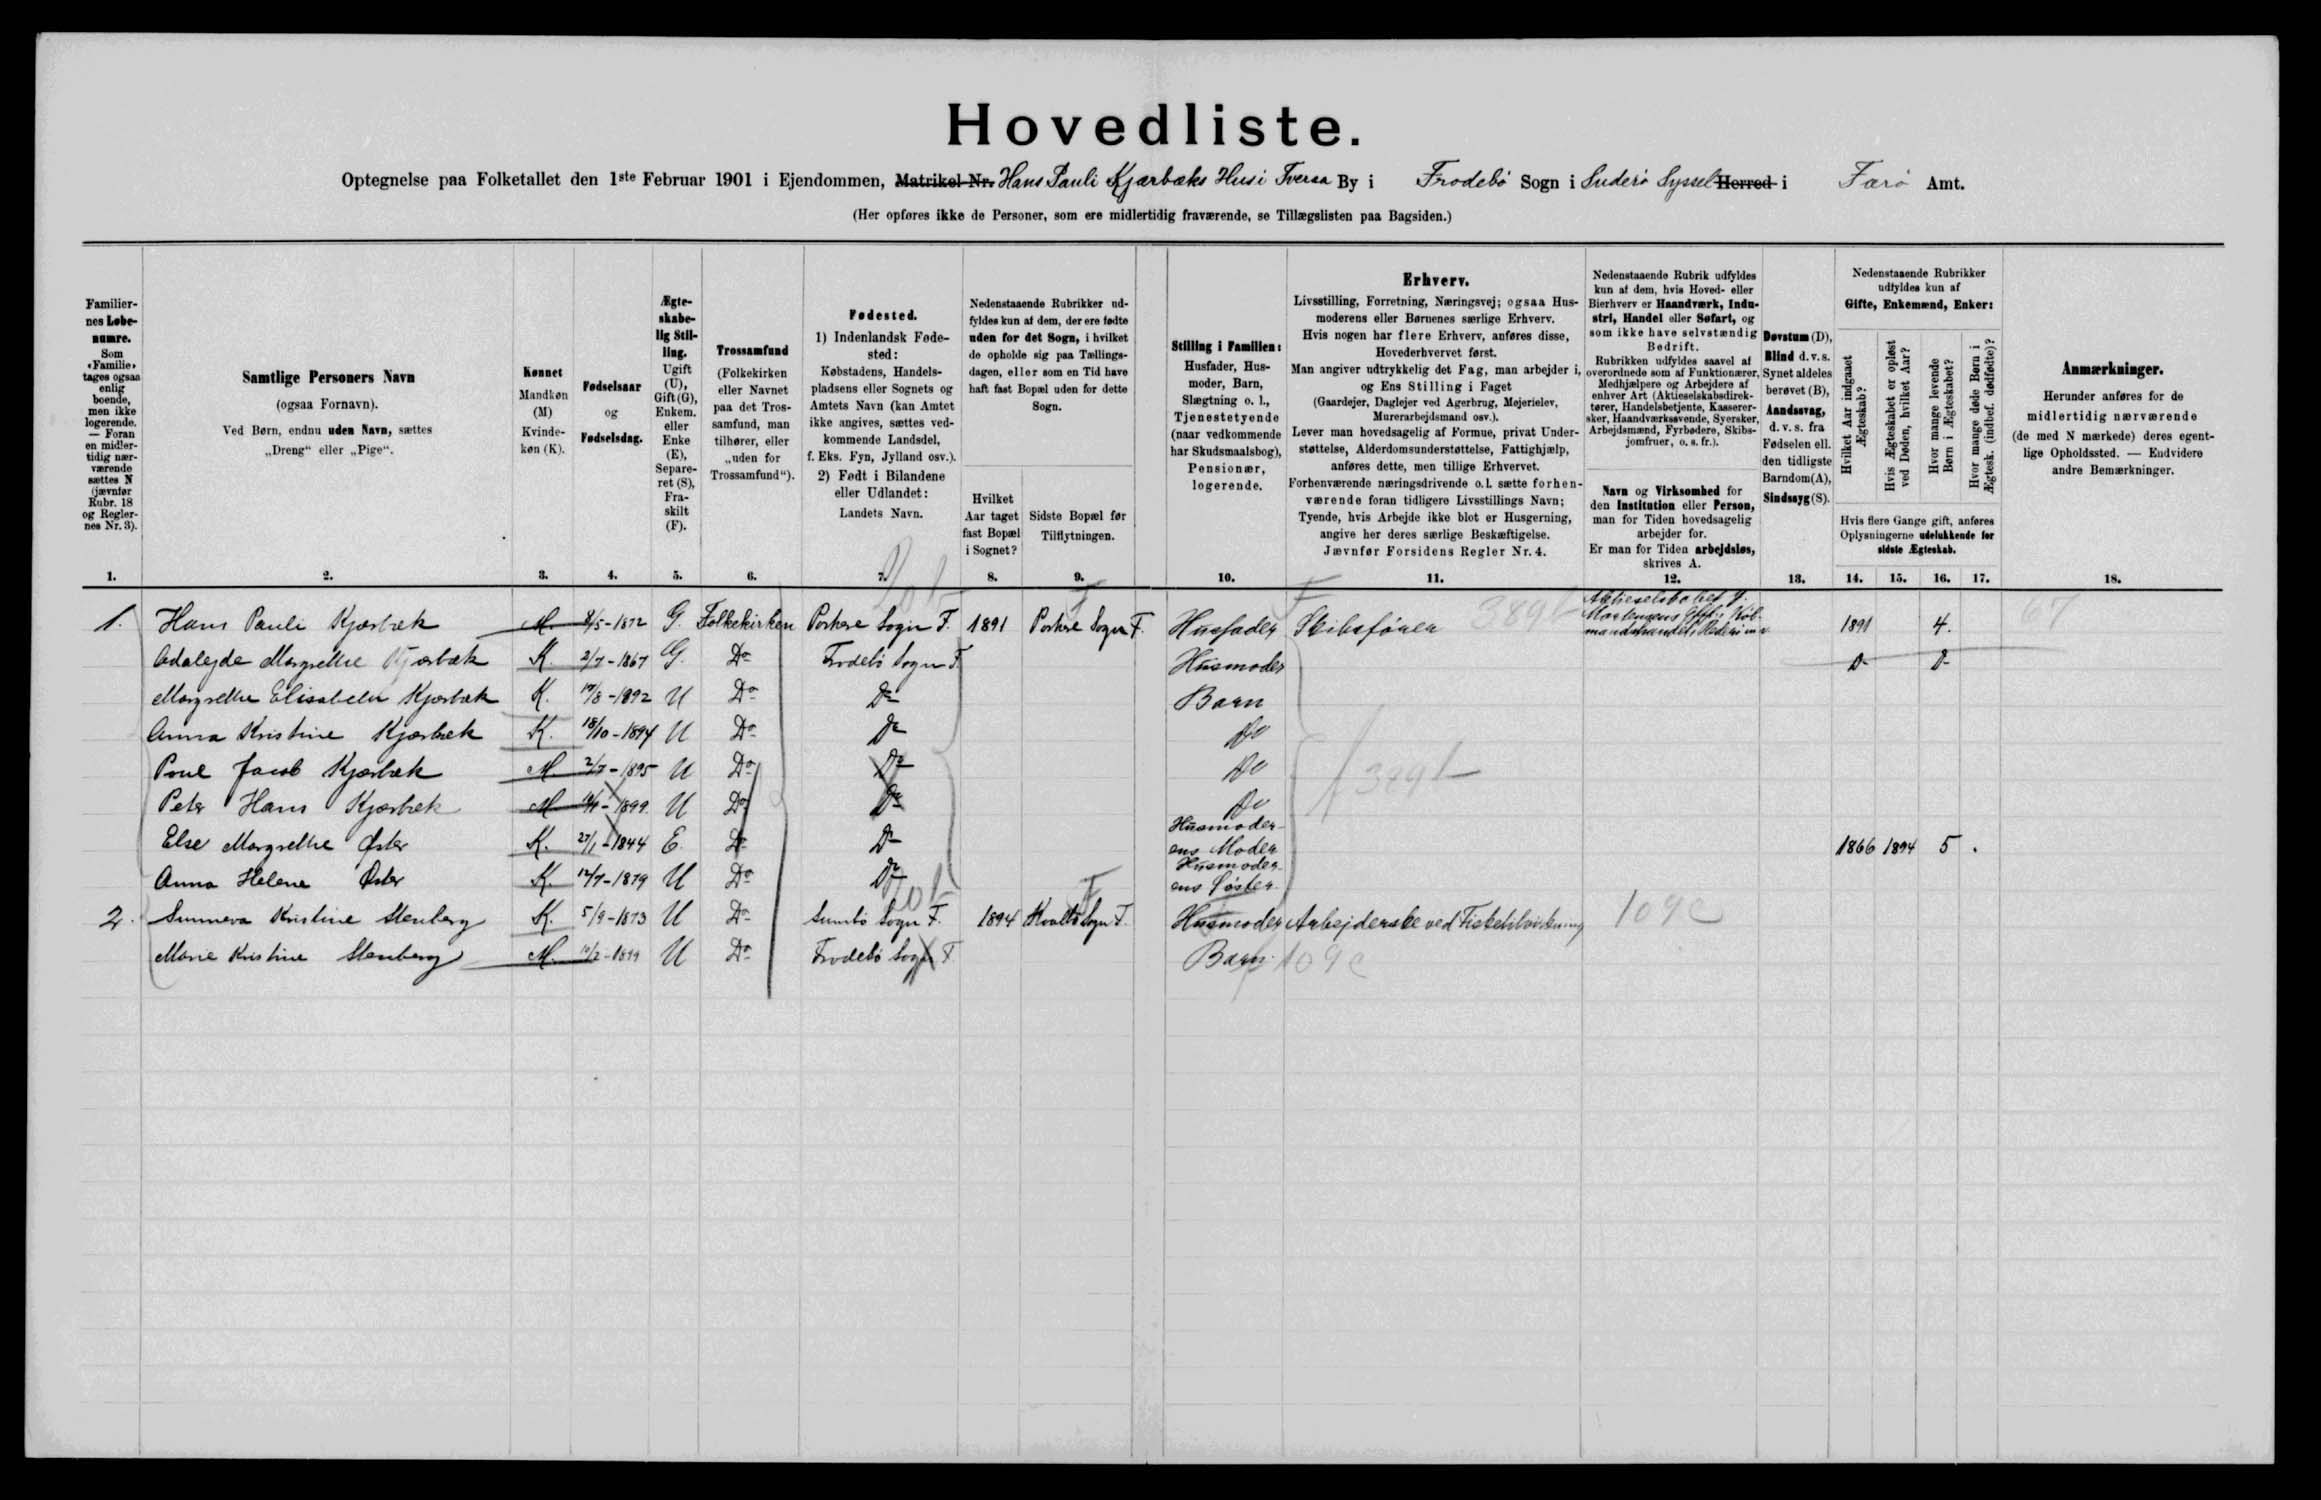 Hovedliste.
Optegnelse paa Folketallet den 1ste Februar 1901 i Ejendommen, Matrikel-Nr. Hans Pauli Kjærbæks Hus i Tveraa By i Frodebö Sogn i Suderö Syssel Herred i Færö Amt.
(Her opføres ikke de Personer, som ere midlertidig fraværende, se Tillægslisten paa Bagsiden.)
Familier-
nes Løbe-
numre.
Som
«Familie»
tages ogsaa
enlig
boende,
men ikke
logerende.
— Foran
en midler-
tidig nær-
værende
sættes N
(jævnfør
Rubr. 18
og Regler-
nes Nr. 3).
Samtlige Personers Navn
(ogsaa Fornavn).
Ved Børn, endnu uden Navn, sættes
„Dreng“ eller „Pige“.
Kønnet
Mandkøn
(M)
Kvinde-
køn (K).
Fødselsaar
og
Fødselsdag.
Ægte-
skabe-
lig Stil-
ling.
Ugift
(U),
Gift (G),
Enkem.
eller
Enke
(E),
Separe-
ret (S),
Fra-
skilt
(F).
Trossamfund
(Folkekirken
eller Navnet
paa det Tros-
samfund, man
tilhører, eller
„uden for
Trossamfund“).
Fødested.
1) Indenlandsk Føde-
sted:
Købstadens, Handels-
pladsens eller Sognets og
Amtets Navn (kan Amtet
ikke angives, sættes ved-
kommende Landsdel,
f. Eks. Fyn, Jylland osv.).
2) Født i Bilandene
eller Udlandet:
Landets Navn.
Nedenstaaende Rubrikker ud-
fyldes kun af dem, der ere fødte
uden for det Sogn, i hvilket
de opholde sig paa Tællings-
dagen, eller som en Tid have
haft fast Bopæl uden for dette
Sogn.
Hvilket
Aar taget
fast Bopæl
i Sognet?
Sidste Bopæl før
Tilflytningen.
Stilling i Familien:
Husfader, Hus-
moder, Barn,
Slægtning o. l.,
Tjenestetyende
(naar vedkommende
har Skudsmaalsbog),
Pensionær,
logerende.
Erhverv.
Livsstilling, Forretning, Næringsvej; ogsaa Hus-
moderens eller Børnenes særlige Erhverv.
Hvis nogen har flere Erhverv, anføres disse,
Hovederhvervet først.
Man angiver udtrykkelig det Fag, man arbejder i,
og Ens Stilling i Faget
(Gaardejer, Daglejer ved Agerbrug, Mejerielev,
Murerarbejdsmand osv.).
Lever man hovedsagelig af Formue, privat Under-
støttelse, Alderdomsunderstøttelse, Fattighjælp,
anføres dette, men tillige Erhvervet.
Forhenværende næringsdrivende o. l. sætte forhen-
værende foran tidligere Livsstillings Navn;
Tyende, hvis Arbejde ikke blot er Husgerning,
angive her deres særlige Beskæftigelse.
Jævnfør Forsidens Regler Nr. 4.
Nedenstaaende Rubrik udfyldes
kun af dem, hvis Hoved- eller
Bierhverv er Haandværk, Indu-
stri, Handel eller Søfart, og
som ikke have selvstændig
Bedrift.
Rubrikken udfyldes saavel af
overordnede som af Funktionærer,
Medhjælpere og Arbejdere af
enhver Art (Aktieselskabsdirek-
tører, Handelsbetjente, Kasserer-
sker, Haandværkssvende, Syersker,
Arbejdsmænd, Fyrbødere, Skibs-
jomfruer, o. s. fr.).
Navn og Virksomhed for
den Institution eller Person,
man for Tiden hovedsagelig
arbejder for.
Er man for Tiden arbejdsløs,
skrives A.
Døvstum (D),
Blind d. v. s.
Synet aldeles
berøvet (B),
Aandssvag,
d. v. s. fra
Fødselen ell.
den tidligste
Barndom (A),
Sindssyg (S).
Nedenstaaende Rubrikker
udfyldes kun af
Gifte, Enkemænd, Enker:
Hvilket Aar indgaaet
Ægteskab?
Hvis Ægteskabet er opløst
ved Døden, hvilket Aar?
Hvor mange levende
Børn i Ægteskabet?
Hvor mange døde Børn i
Ægtesk. (indbef. dødfødte)?
Hvis flere Gange gift, anføres
Oplysningerne udelukkende for
sidste Ægteskab.
Anmærkninger.
Herunder anføres for de
midlertidig nærværende
(de med N mærkede) deres egent-
lige Opholdssted. — Endvidere
andre Bemærkninger.
1. 2. 3. 4. 5. 6. 7. 8. 9. 10. 11. 12. 13. 14. 15. 16. 17. 18.
1. Hans Pauli Kjærbæk M 8/5-1872 G. Folkekirken Porkere Sogn F. 1891 Porkere Sogn F. Husfader Skibsförer 1891 4. 67
Adalejde Margrethe Kjærbæk K. 2/7-1867 G. Do Frodebö Sogn F. Husmoder Do Do
Margrethe Elisabeth Kjærbæk K. U Do Do Barn
Anna Kristine Kjærbæk K. 18/10-1894 U Do Do Do
Poul Jacob Kjærbæk M. 2/7-1895 U Do Do Do
389
Peter Hans Kjærbæk M 1899. U Do Do Do
Else Margrethe Öster K. 27/1-1844 E. Do Do Husmoder-
ens Moder 1866 1894 5.
Anna Helene Öster K. 12/7-1879 U Do Do Husmoder-
ens Söster
2. Sunneva Kristine Stenberg K. 5/9-1873 U Do Sumbö Sogn F. 1894 Kvalbö Sogn F. Husmoder Arbejderske ved Fisketilvirkning 109c
Marie Kristine Stenberg M. U Do Frodebö Sogn F. Barn. 109c